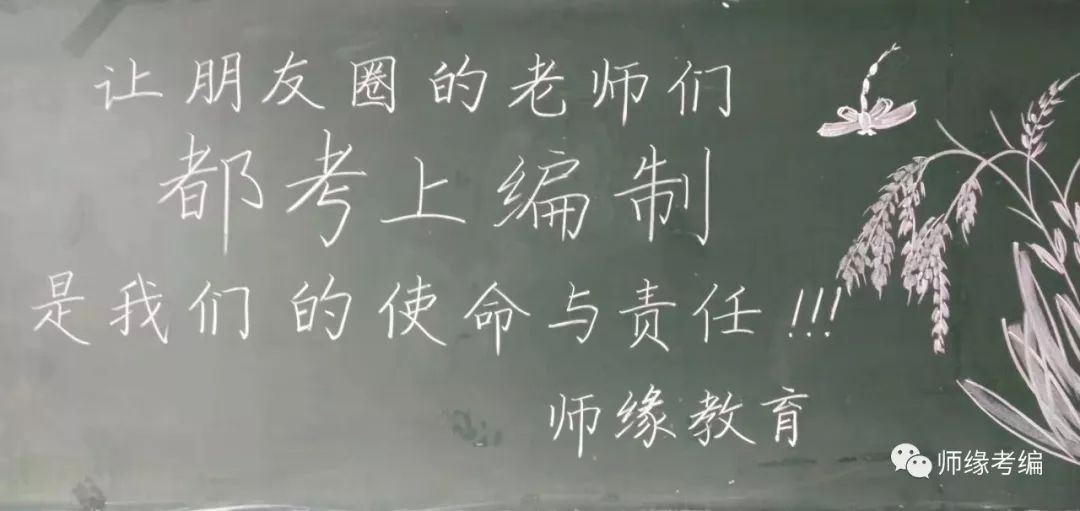 让朋友圈的老师们
都考上编制
是我们的使命与责任!!!
师缘教育
师缘考编